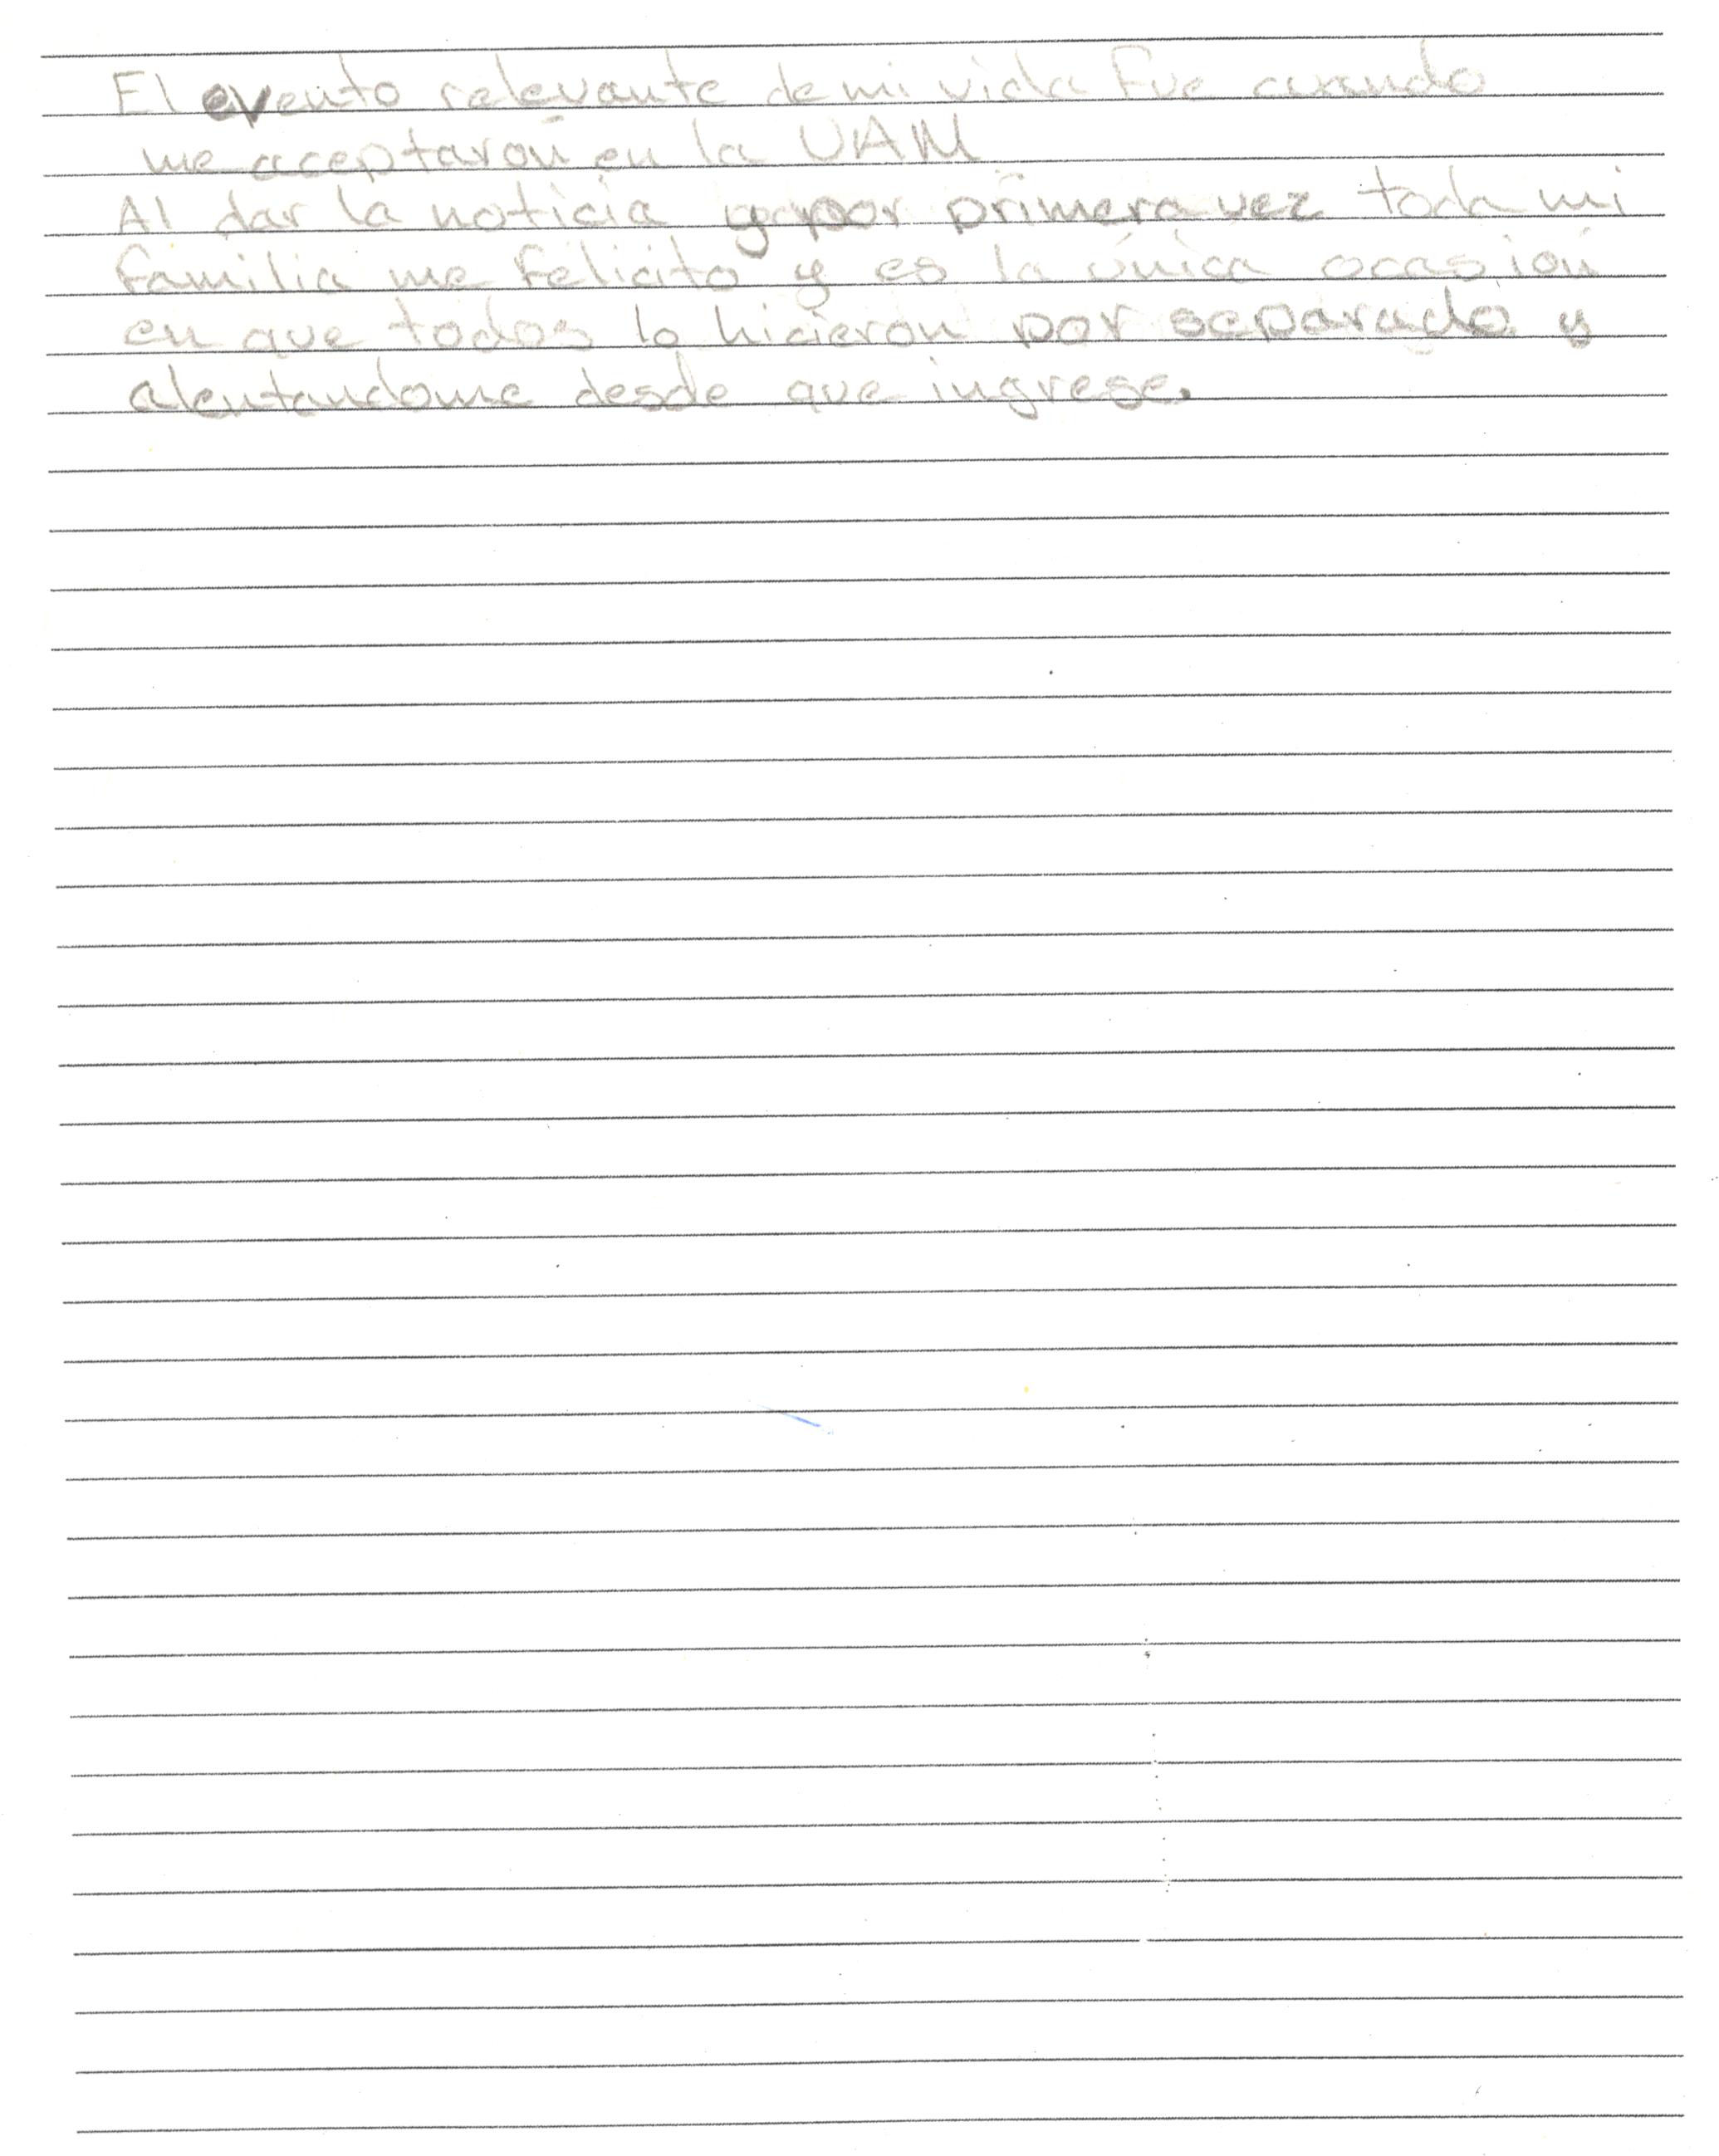 El evento relevante de mi vida fue cuando
me aceptarón en la UAM
Al dar la noticia y por primera vez toda mi
familia me felicito y es la única ocasión
en que todos lo hicierón por separado y
alentandome desde que ingrese.